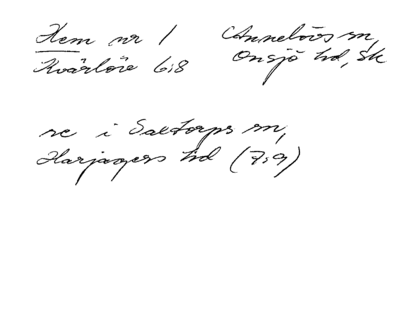 Hem nr 1
Kvärlöv 6:8
Annelövs sn,
Onsjö hd, Sk
se i Saxtorps sn,
Harjagers hd (7:9)